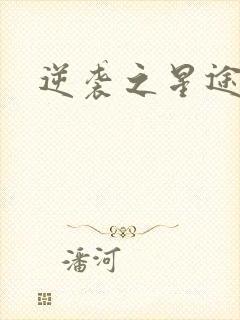 逆袭之星途
潘河